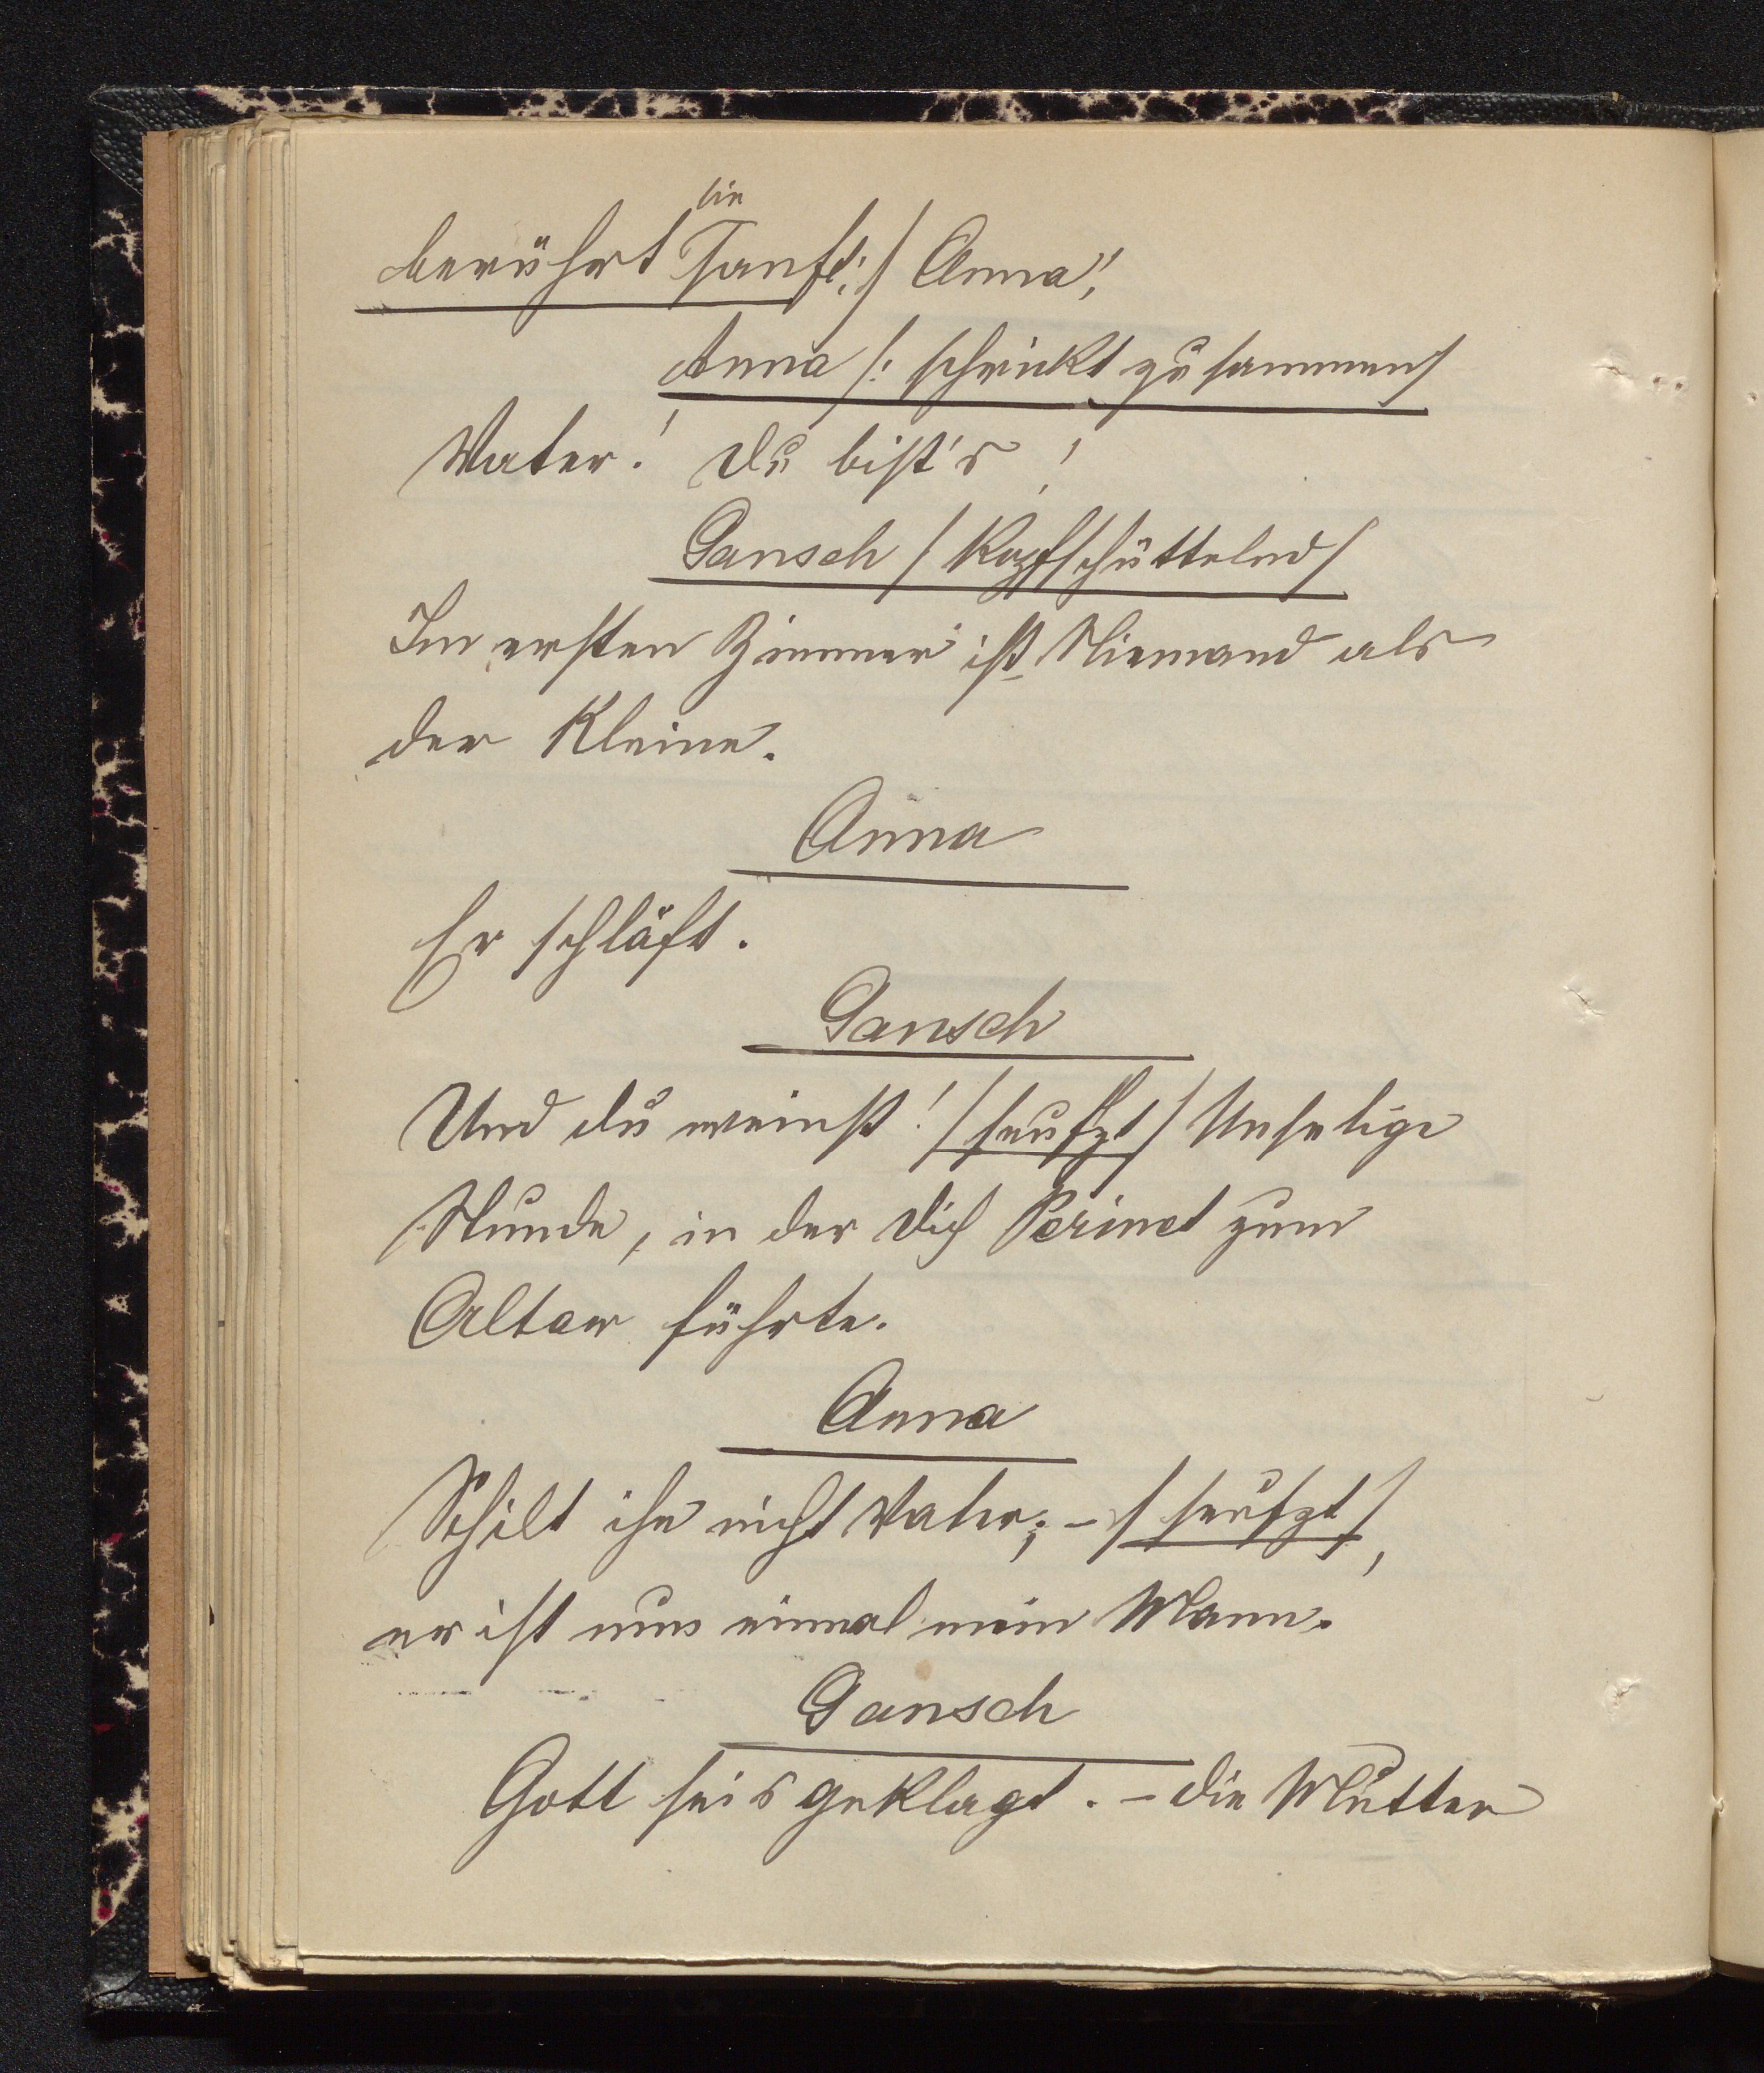 sie
berührt sanft:/ Anna!
Anna /: schrickt zusammen/
Vater! Du bist's!
Gansch /Kopfschüttelnd/
Im ersten Zimmer ist Niemand als
der Kleine.
Anna
Er schläft.
Gansch
Und du weinst! /seufzt/ Unselige
Stunde, in der dich Perinet zum
Altar führte.
Anna
Schilt ihn nicht Vater; - /seufzt/,
er ist nun einmal mein Mann.
Gansch
Gott sei's geklagt. - Die Mutter